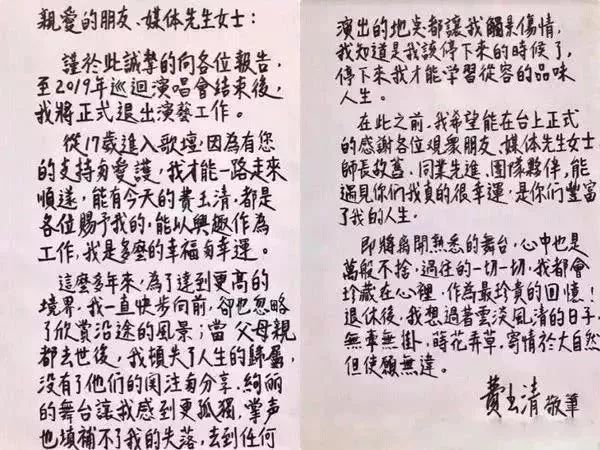 親愛的朋友、媒体先生女士：
謹於此誠摯的向各位報告，
至2019年巡迴演唱會結束後，
我將正式退出演藝工作。
從17歲進入歌壇，因為有您
的支持与愛護，我才能一路走來
順遂，能有今天的費玉清，都是
各位賜予我的，能以興趣作為
工作，我是多麼的幸福与幸運。
這麼多年來，為了達到更高的
境界，我一直快步向前，卻也忽略
了欣賞沿途的風景；當父母親
都去世後，我頓失了人生的歸屬，
沒有了他們的関注与分享，絢麗
的舞台讓我感到更孤獨，掌声
也填補不了我的失落，去到任何
演出的地点都讓我觸景傷情，
我知道是我該停下來的時候了，
停下來我才能学習從容的品味
人生。
在此之前，我希望能在台上正式
的感謝各位观衆朋友、媒体先生女士
師長故舊、同業先進、團隊夥伴，能
遇見你們我真的很幸運，是你們豐富
了我的人生。
即將离開熟悉的舞台，心中也是
萬般不捨，過往的一切一切，我都會
珍藏在心裡，作為最珍貴的回憶！
退休後，我想過著雲淡風清的日子，
無牽無掛，蒔花弄草，寄情於大自然
但使願無違。
費玉清 敬筆